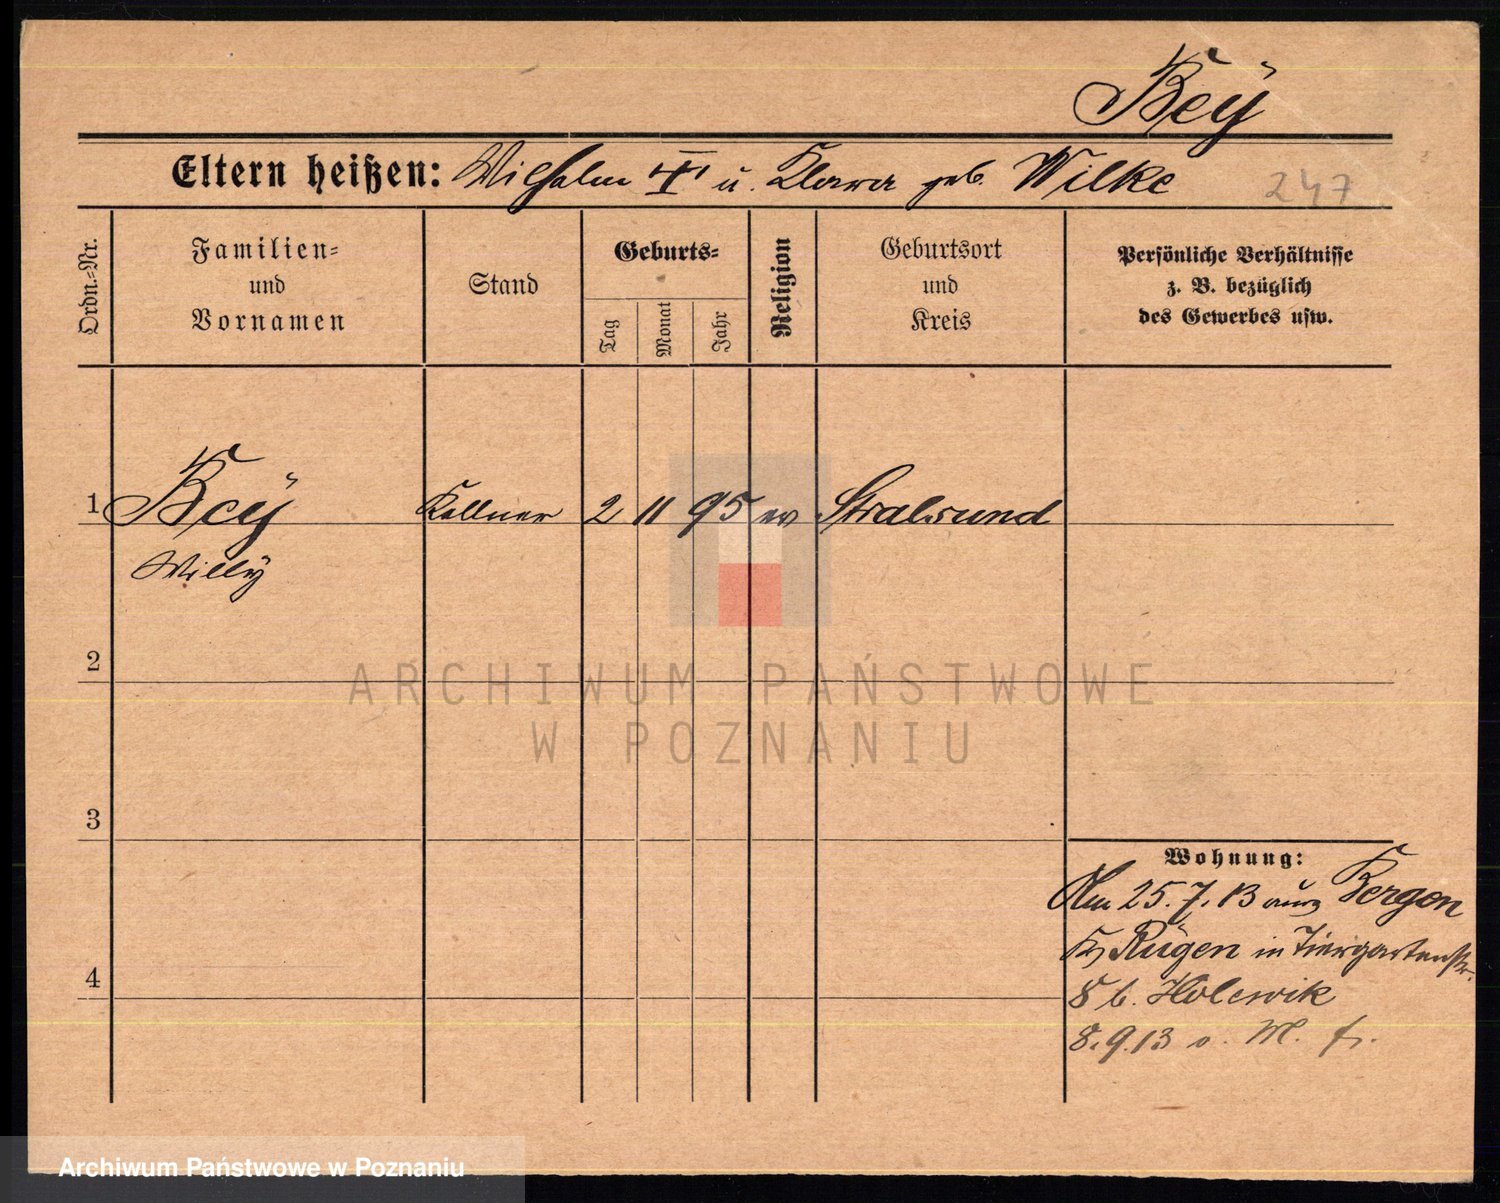 Bey
Eltern heißen: Wilhelm † u. Klara geb. Wilke 247
Ordn.-Nr.
Familien- und Vornamen
Stand
Geburts-
Tag
Monat
Jahr
Religion
Geburtsort und Kreis
Persönliche Verhältnisse
z. B. bezüglich
des Gewerbes usw.
1 Bey Kellner 2 11 95 ev Stralsund
Willy
2
ARCHIWUM PAŃSTWOWE
W POZNANIU
3
Wohnung:
Am 25.7.13 aus Bergen
Rügen in Tiergartenstr.
4
8 b. Holewik
8.9.13 M.
Archiwum Państwowe w Poznaniu